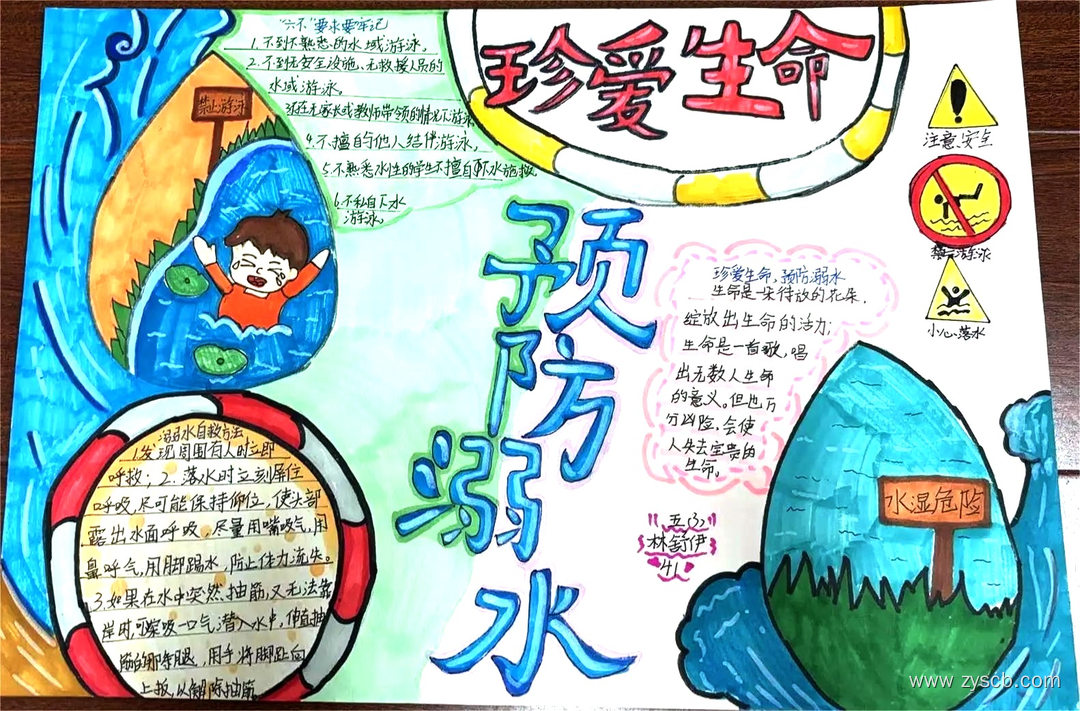 珍爱生命
预防溺水
"六不"要求要牢记
1.不到不熟悉的水域游泳。
2.不到无安全设施、无救援人员的
水域游泳。
3.不在无家长或教师带领的情况下游泳
4.不擅自与他人结伴游泳,
5.不熟悉水性的学生不擅自下水施救
6.不私自下水
游泳。
禁止游泳
注意安全
禁止游泳
小心落水
珍爱生命,预防溺水
生命是一朵待放的花朵,
绽放出生命的活力;
生命是一首歌,唱
出无数人生命
的意义。但也万
分凶险,会使
人失去宝贵的
生命。
五(3)
林舒伊
41
水湿危险
溺水自救方法
1.发现周围有人时立即
呼救;2.落水时立刻屏住
呼吸,尽可能保持仰位,使头部
露出水面呼吸,尽量用嘴吸气,用
鼻呼气,用脚踢水,防止体力流失。
3.如果在水中突然抽筋,又无法靠
岸时,可深吸一口气潜入水中,伸直抽
筋的那条腿,用手将脚趾向
上扳,以解除抽筋
www.zyscb.com